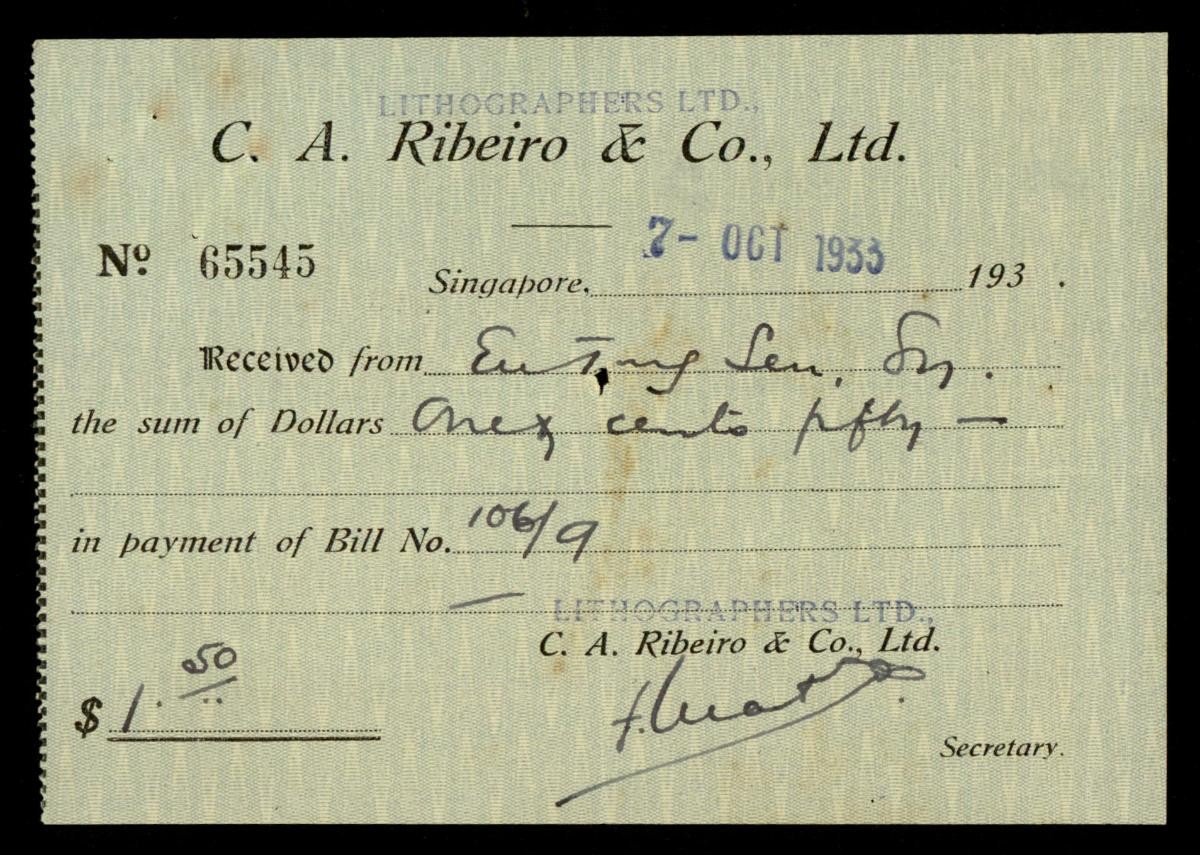 LITHOGRAPHERS LTD.,
C. A. Ribeiro & Co., Ltd.
Nº 65545
7- OCT 1933
Singapore, 193 .
Received from Eu Tong Sen, Esq.
the sum of Dollars One & cents fifty —
in payment of Bill No. 106/9
LITHOGRAPHERS LTD.,
C. A. Ribeiro & Co., Ltd.
$ 1.50
Secretary.